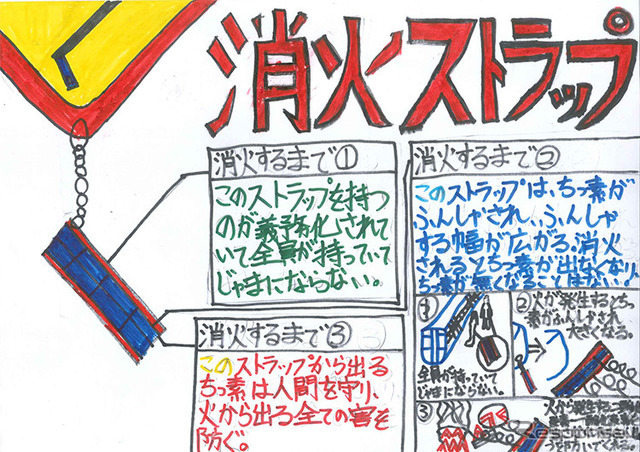 消火ストラップ
消火するまで①
このストラップを持つ
のが義務化されて
いて全員が持っていて
じゃまにならない。
消火するまで②
このストラップは、ちっ素が
ふんしゃされ、ふんしゃ
する幅が広がる、消火
されるとちっ素が出なくなり、
ちっ素が無くなることはない。
消火するまで③
このストラップから出る
ちっ素は人間を守り、
火から出る全ての害を
防ぐ。
①
全員が持っていて
じゃまにならない。
②火が発生するとちっ
素がふんしゃされ
大きくなる。
③
火から発生する